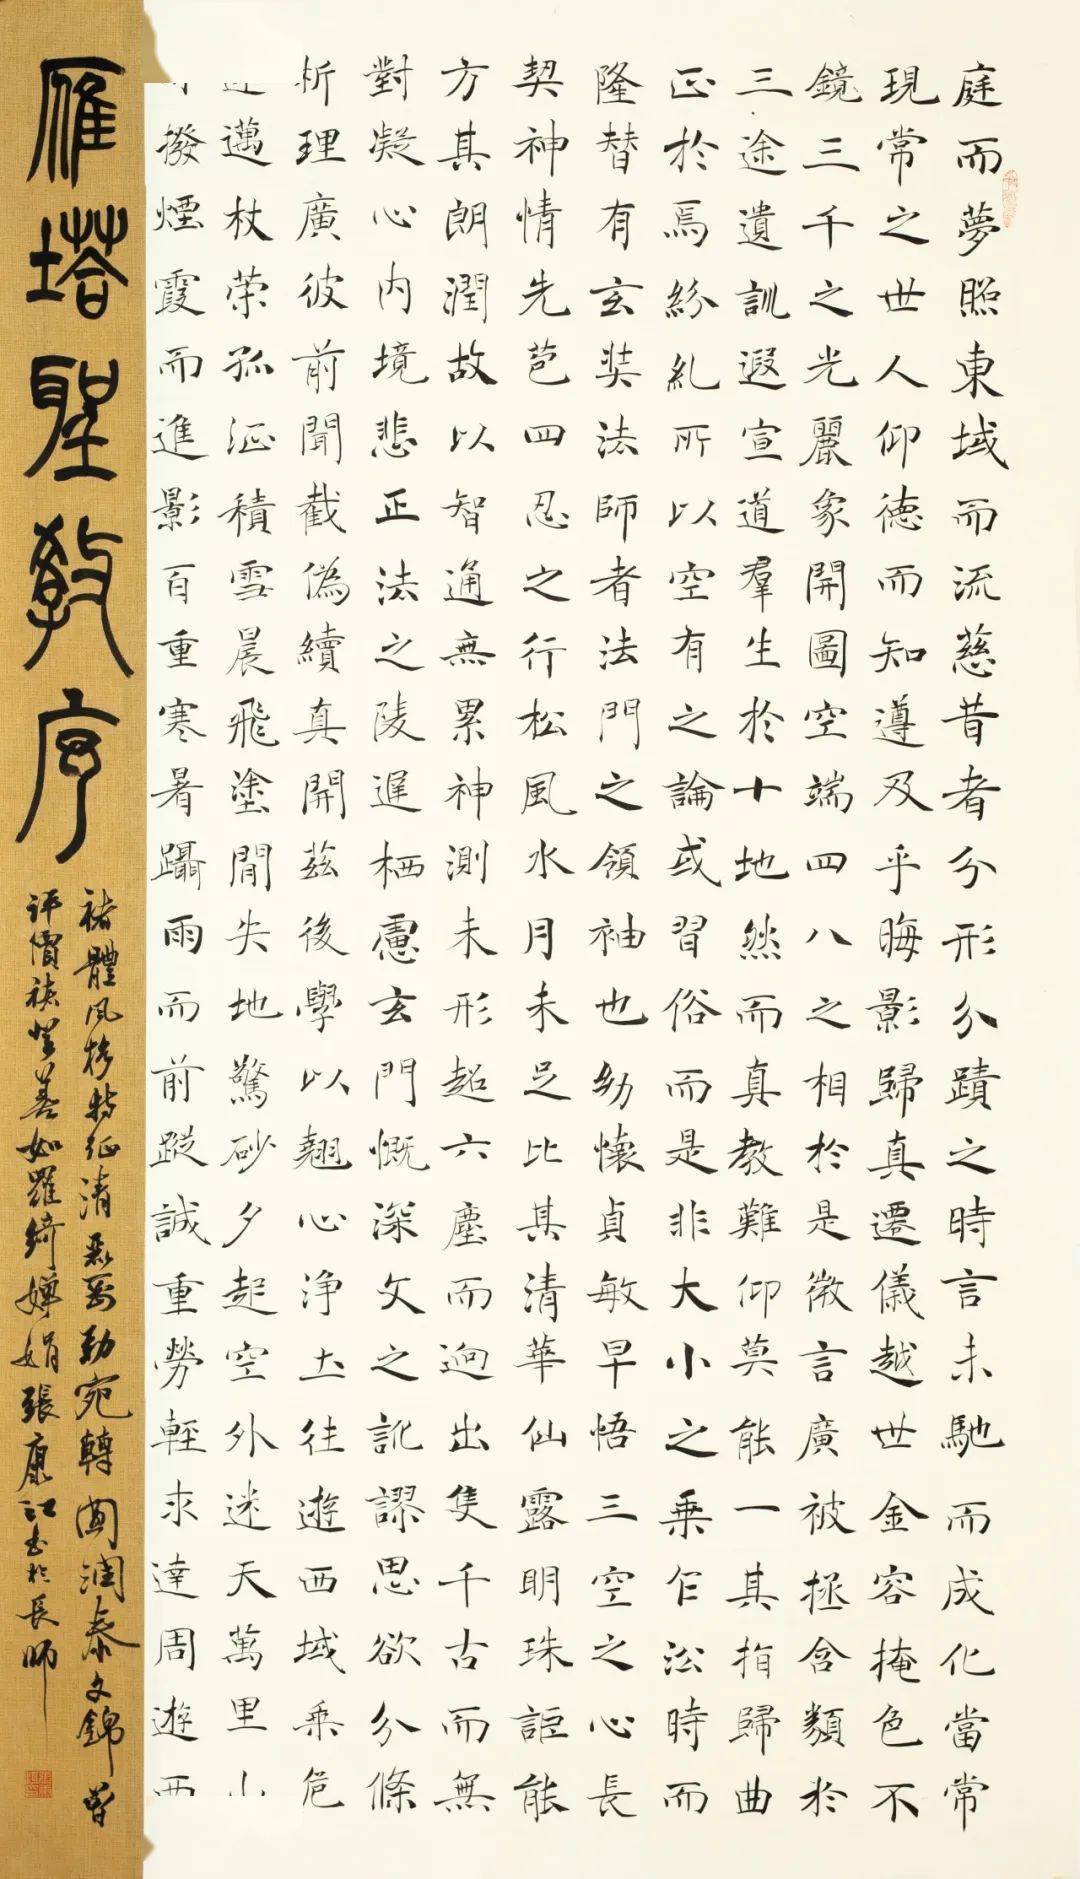 庭而夢照東域而流慈昔者分形分蹟之時言未馳而成化當常
現常之世人仰德而知遵及乎晦影歸真遷儀越世金容掩色不
鏡三千之光麗象開圖空端四八之相於是微言廣被拯含類於
三途遺訓遐宣道羣生於十地然而真教難仰莫能一其指歸曲
正於焉紛糺所以空有之論或習俗而是非大小之乘乍沿時而
隆替有玄奘法師者法門之領袖也幼懷貞敏早悟三空之心長
契神情先苞四忍之行松風水月未足比其清華仙露明珠詎能
方其朗潤故以智通無累神測未形超六塵而迥出隻千古而無
對凝心內境悲正法之陵遲栖慮玄門慨深文之訛謬思欲分條
析理廣彼前聞截偽續真開茲後學以翹心淨土往遊西域乘危
邁杖策孤征積雪晨飛塗閒失地驚砂夕起空外迷天萬里山
撥煙霞而進影百重寒暑躡雨而前蹤誠重勞輕求達周遊西
雁塔聖教序
褚體風格特征清麗剛勁宛轉圓潤秦文錦曾
評價褚登善如羅綺嬋娟張康江書於長師